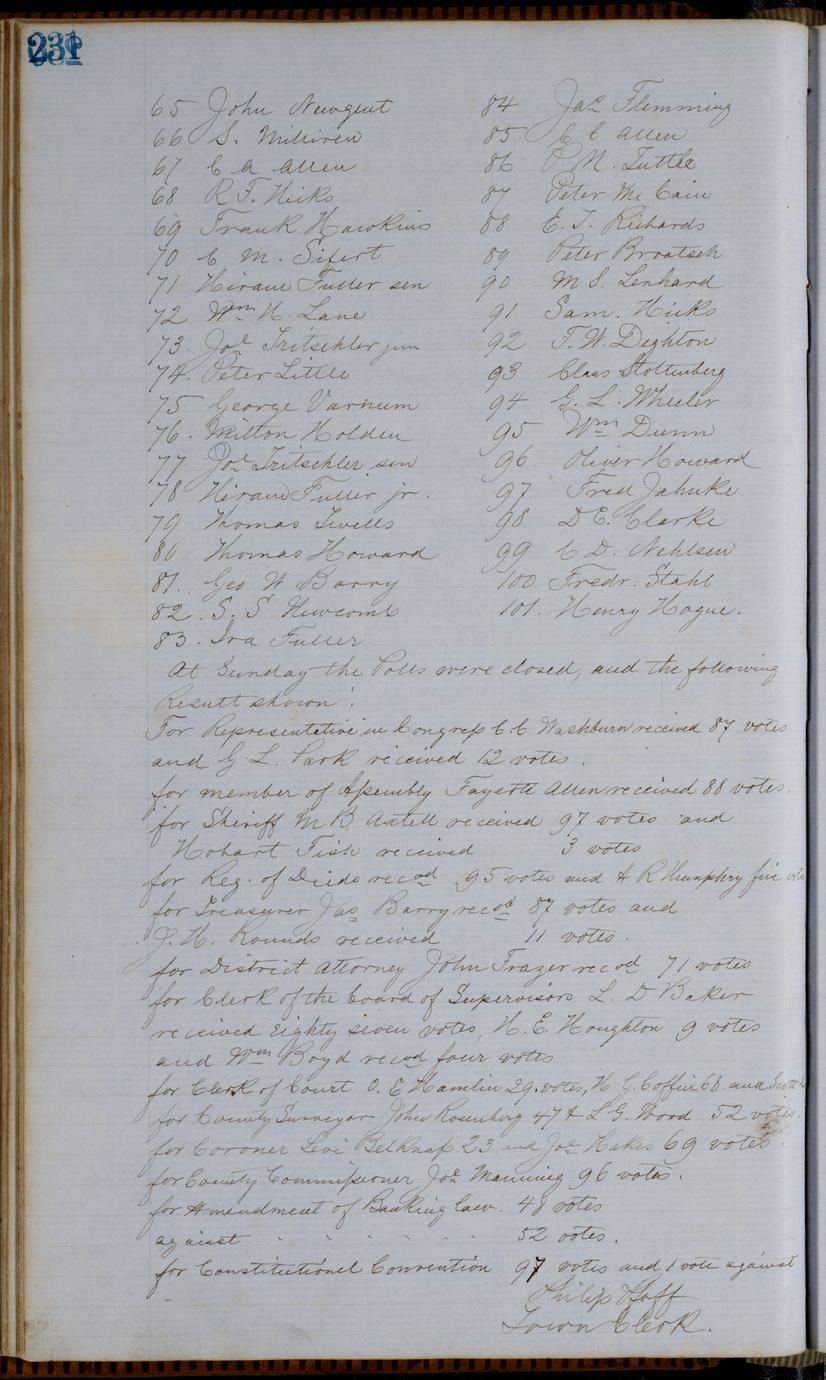 231
65 John Newgent
66 S. Milliren
67 C A Allen
68 R F. Hicks
69 Frank Hawkins
70 C M. Sifert
71 Hiram Fuller sen
72 Wm H. Lane
73. Jos Tritschler jun
74. Peter Little
75 George Varnum
76. Milton Holden
77 Jos Tritschler sen
78 Hiram Fuller jr.
79 Thomas Twells
80 Thomas Howard
81. Geo W Barry
82. S. S Newcomb
83. Ira Fuller
84 Jas Flemming
85 C C Allen
86 P M. Tuttle
87 Peter Mc Cain
88 E. T. Richards
89 Peter Brootseh
90 M S. Lenhard
91 Sam. Hicks
92 F. W. Dighton
93 Claas Stoltenberg
94 G. L. Wheeler
95 Wm Dunn
96 Oliver Howard
97 Fred Jahnke
98 D E. Clarke
99 C D. Nehlsen
100 Fredr. Stahl
101. Henry Hogue.
At Sunday the Polls were closed, and the following
Result shown:
For Representative in Congress C C Washburn received 87 votes
and G L. Park received 12 votes.
for member of Assembly Fayette Allen received 88 votes.
for Sheriff M B. Axtell received 97 votes and
Hobart Fish received 3 votes
for Reg. of Deeds recod 95 votes and A R Humphry five vots
for Treasurer Jas Barry recod 87 votes and
J. H. Rounds received 11 votes.
for District Attorney John Frazer recod 71 votes
for Clerk of the board of Supervisors L. D Baker
received Eighty seven votes, H. E. Houghton 9 votes
and Wm Boyd recod four votes
for Clerk of Court O. E Hamlin 29 votes, H G. Coffin 68. and
for County Surveyor John Rosenberg 47 & L G. Wood 52 votes.
for Coroner Levi Belknap 23 and Jos Hakes 69 votes.
for County Commissioner Jos Manning 96 votes.
for Amendment of Banking law. 48 votes
against " " " " " " 52 votes.
for Constitutional Convention 97 votes and 1 vote against
Philip Hoff
Town Clerk.